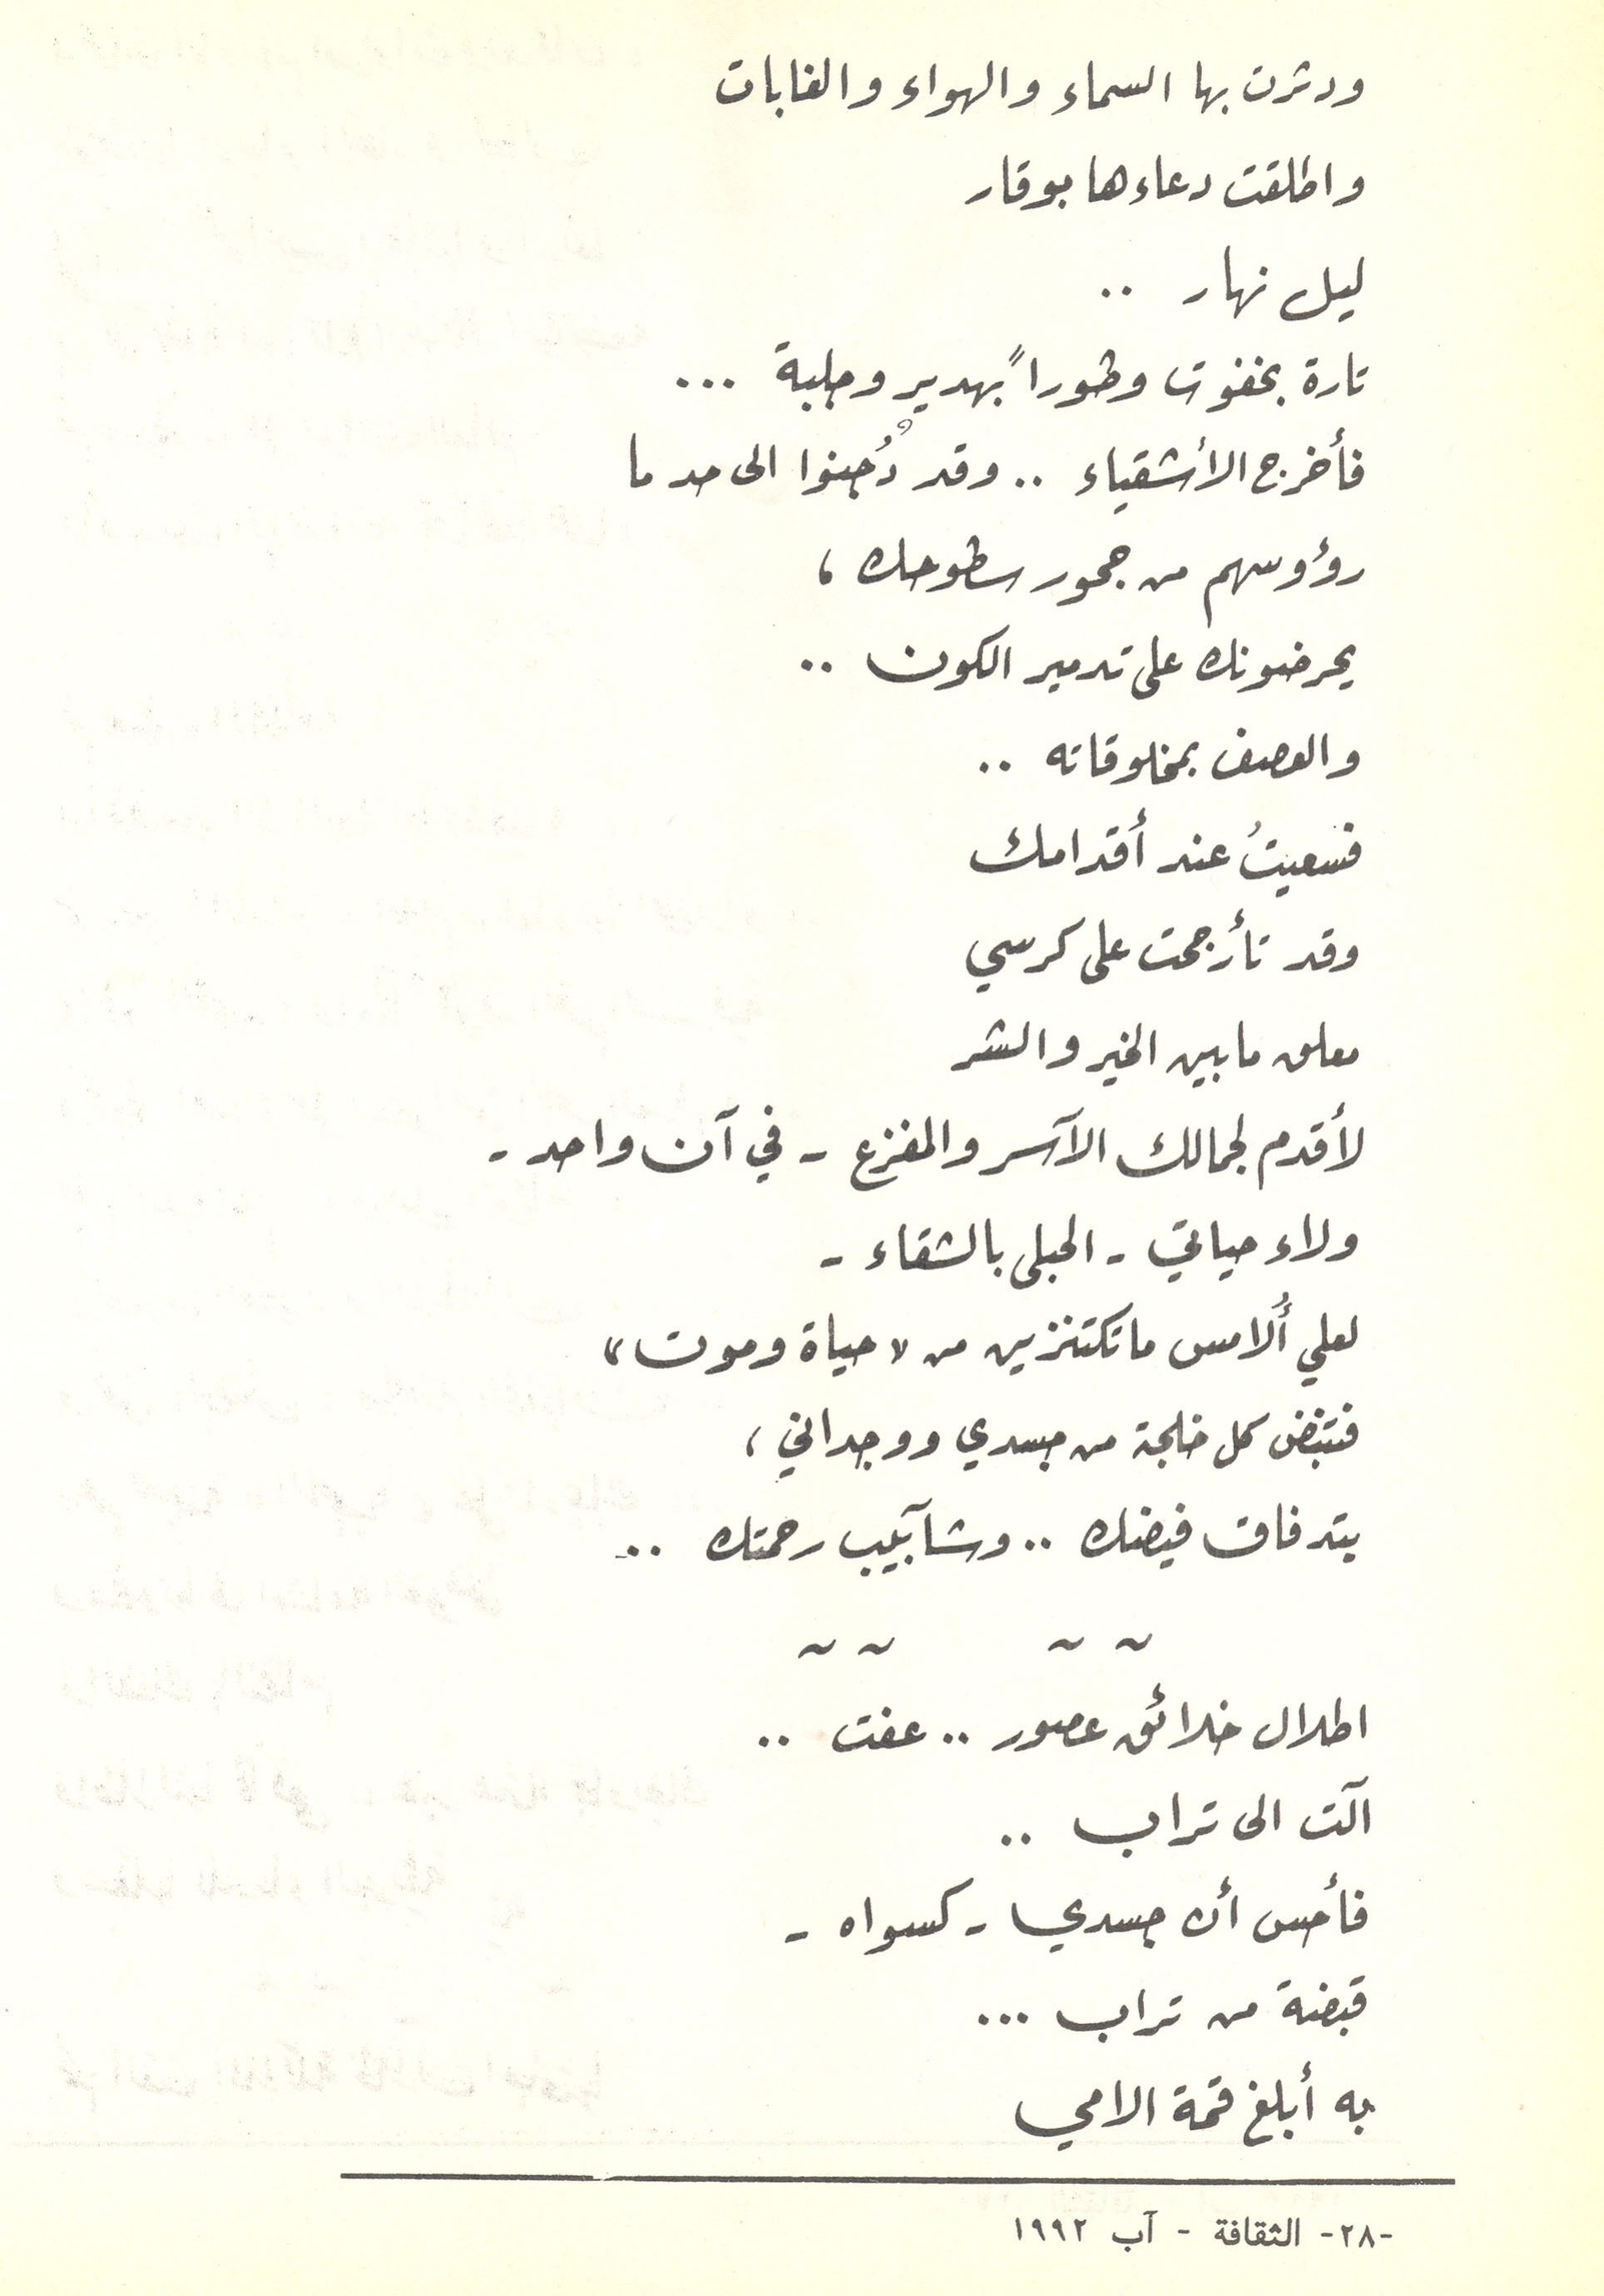 ودثرت بها السماء والهواء والغابات
واطلقت دعاءها بوقار
ليل نهار ..
تارة بخفوت وطوراً بهديرٍ وجلبة ...
فأخرج الأشقياء .. وقد دُجنوا الى حد ما
رؤوسهم من جحور سطوحك ،
يحرضونك على تدمير الكون ..
والعصف بمخلوقاته ..
فسعيتُ عند أقدامك
وقد تأرجحت على كرسي
معلق مابين الخير والشر
لأقدم لجمالك الآسر والمفزع - في آن واحد -
ولاء حياتي - الحبلى بالشقاء -
لعلي أُلامس ماتكتنزين من « حياة وموت »
فتنبض كل خلجة من جسدي ووجداني ،
بتدفاق فيضك .. وشآبيب رحمتك ..
~ ~ ~ ~
اطلال خلائق عصور .. عفت ..
آلت الى تراب ..
فأحس أن جسدي - كسواه -
قبضة من تراب ...
به أبلغ قمة الامي
-٢٨- الثقافة - آب ١٩٩٢